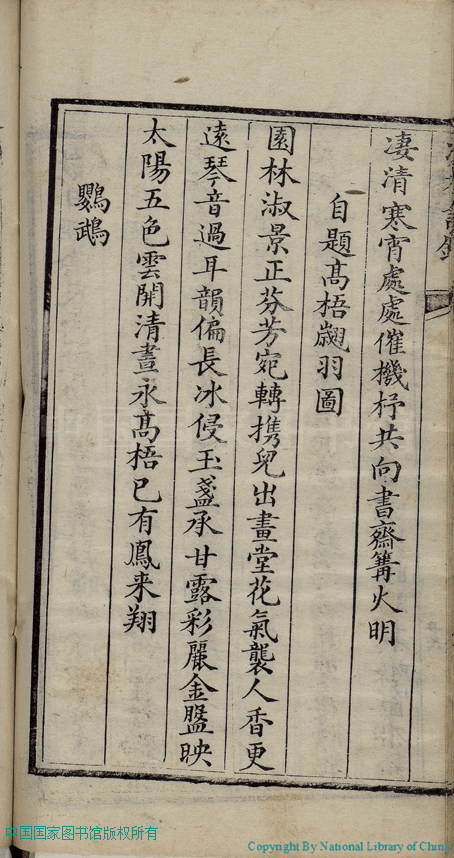 凄清寒宵處處催機杼共向書齋篝火明
自題高梧翽羽圖
園林淑景正芬芳宛轉携兒出畫堂花氣襲人香更
遠琴音過耳韻偏長冰侵玉盞承甘露彩麗金盤映
太陽五色雲開清晝永高梧已有鳳来翔
鸚鵡
中国国家图书馆版权所有
Copyright By National Library of China